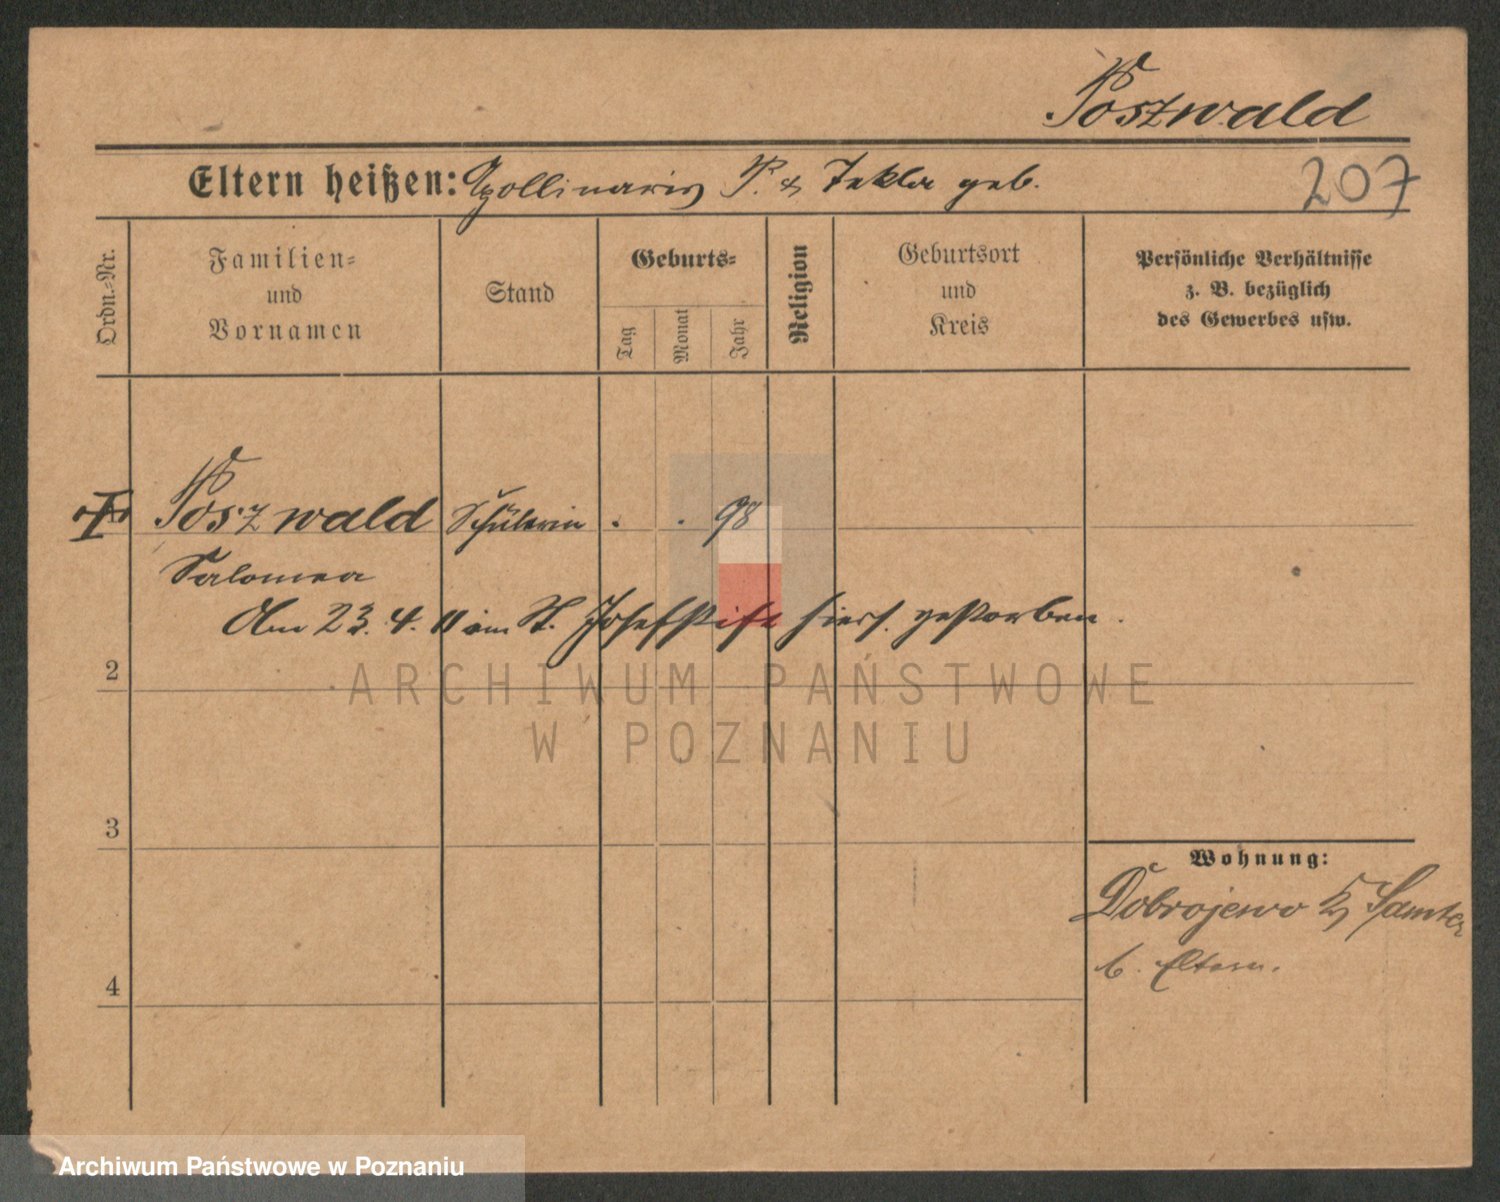 Poszwald
Eltern heißen: Apollinaris P. & Tekla geb.
207
Ordn.-Nr.
Familien-
und
Vornamen
Stand
Geburts-
Tag
Monat
Jahr
Religion
Geburtsort
und
Kreis
Persönliche Verhältnisse
z. B. bezüglich
des Gewerbes usw.
Poszwald Schülerin . . 98
Salomea
Am 23. 4. 11 im St. Josefstift hiers. gestorben.
2
3
4
Wohnung:
Dobrojewo Kr Samter
b. Eltern.
ARCHIWUM PAŃSTWOWE
W POZNANIU
Archiwum Państwowe w Poznaniu